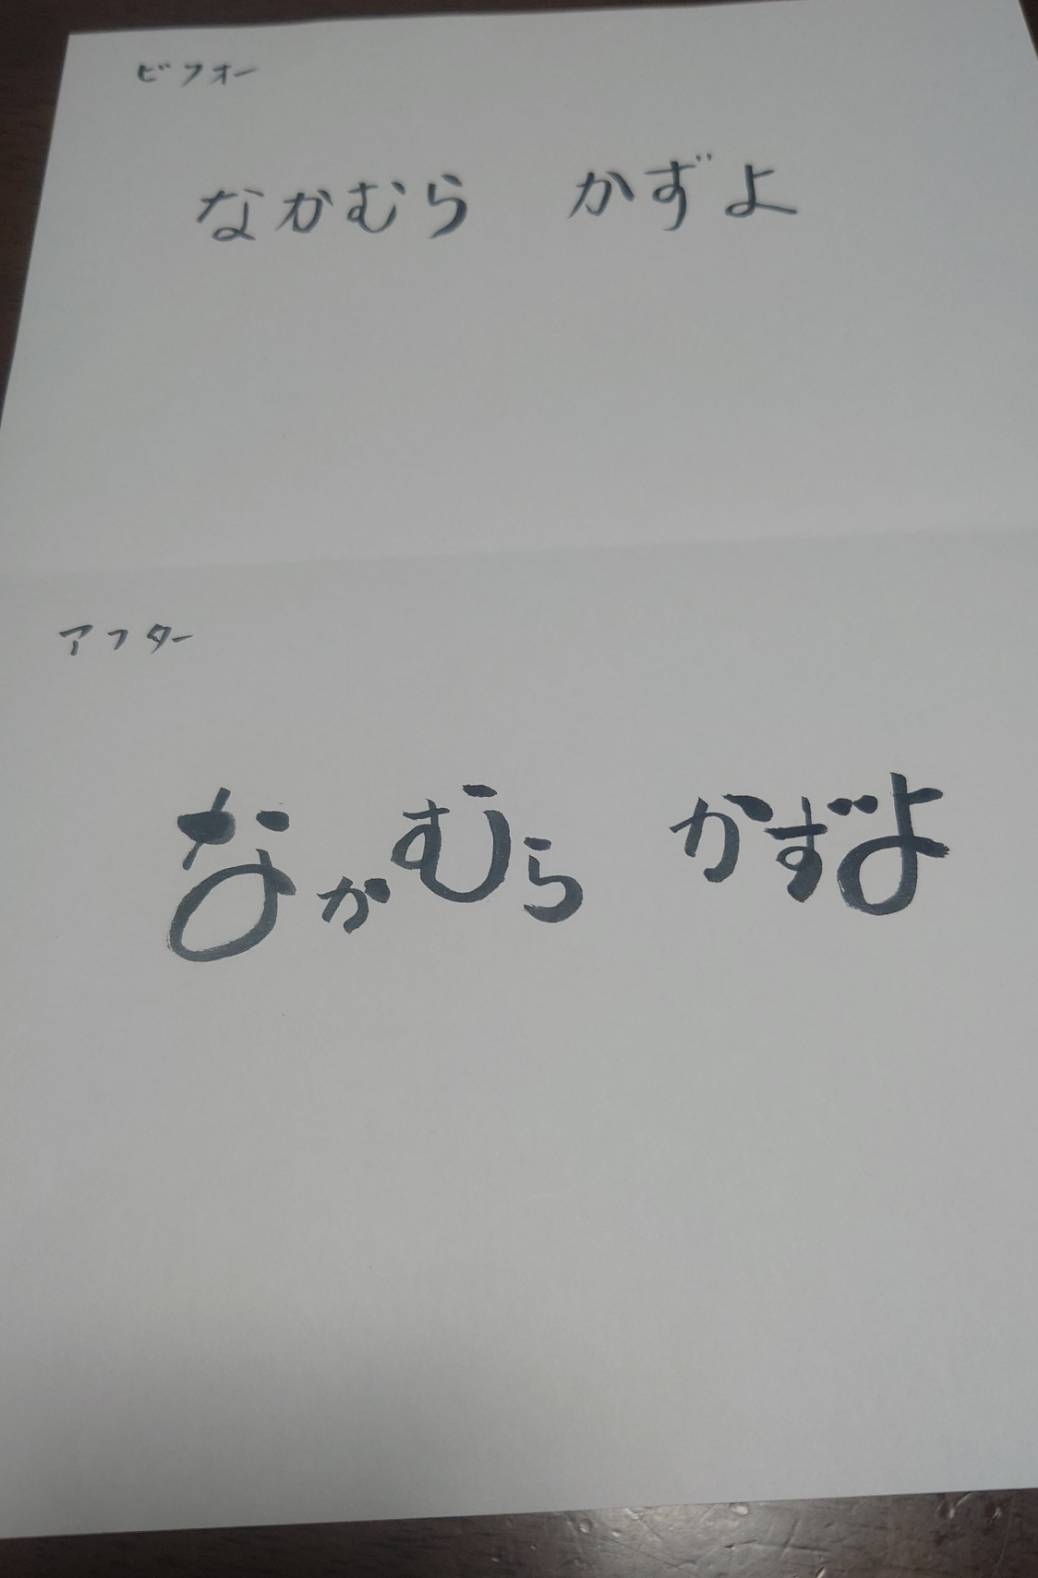 ビフォー
なかむら かずよ
アフター
なかむら かずよ